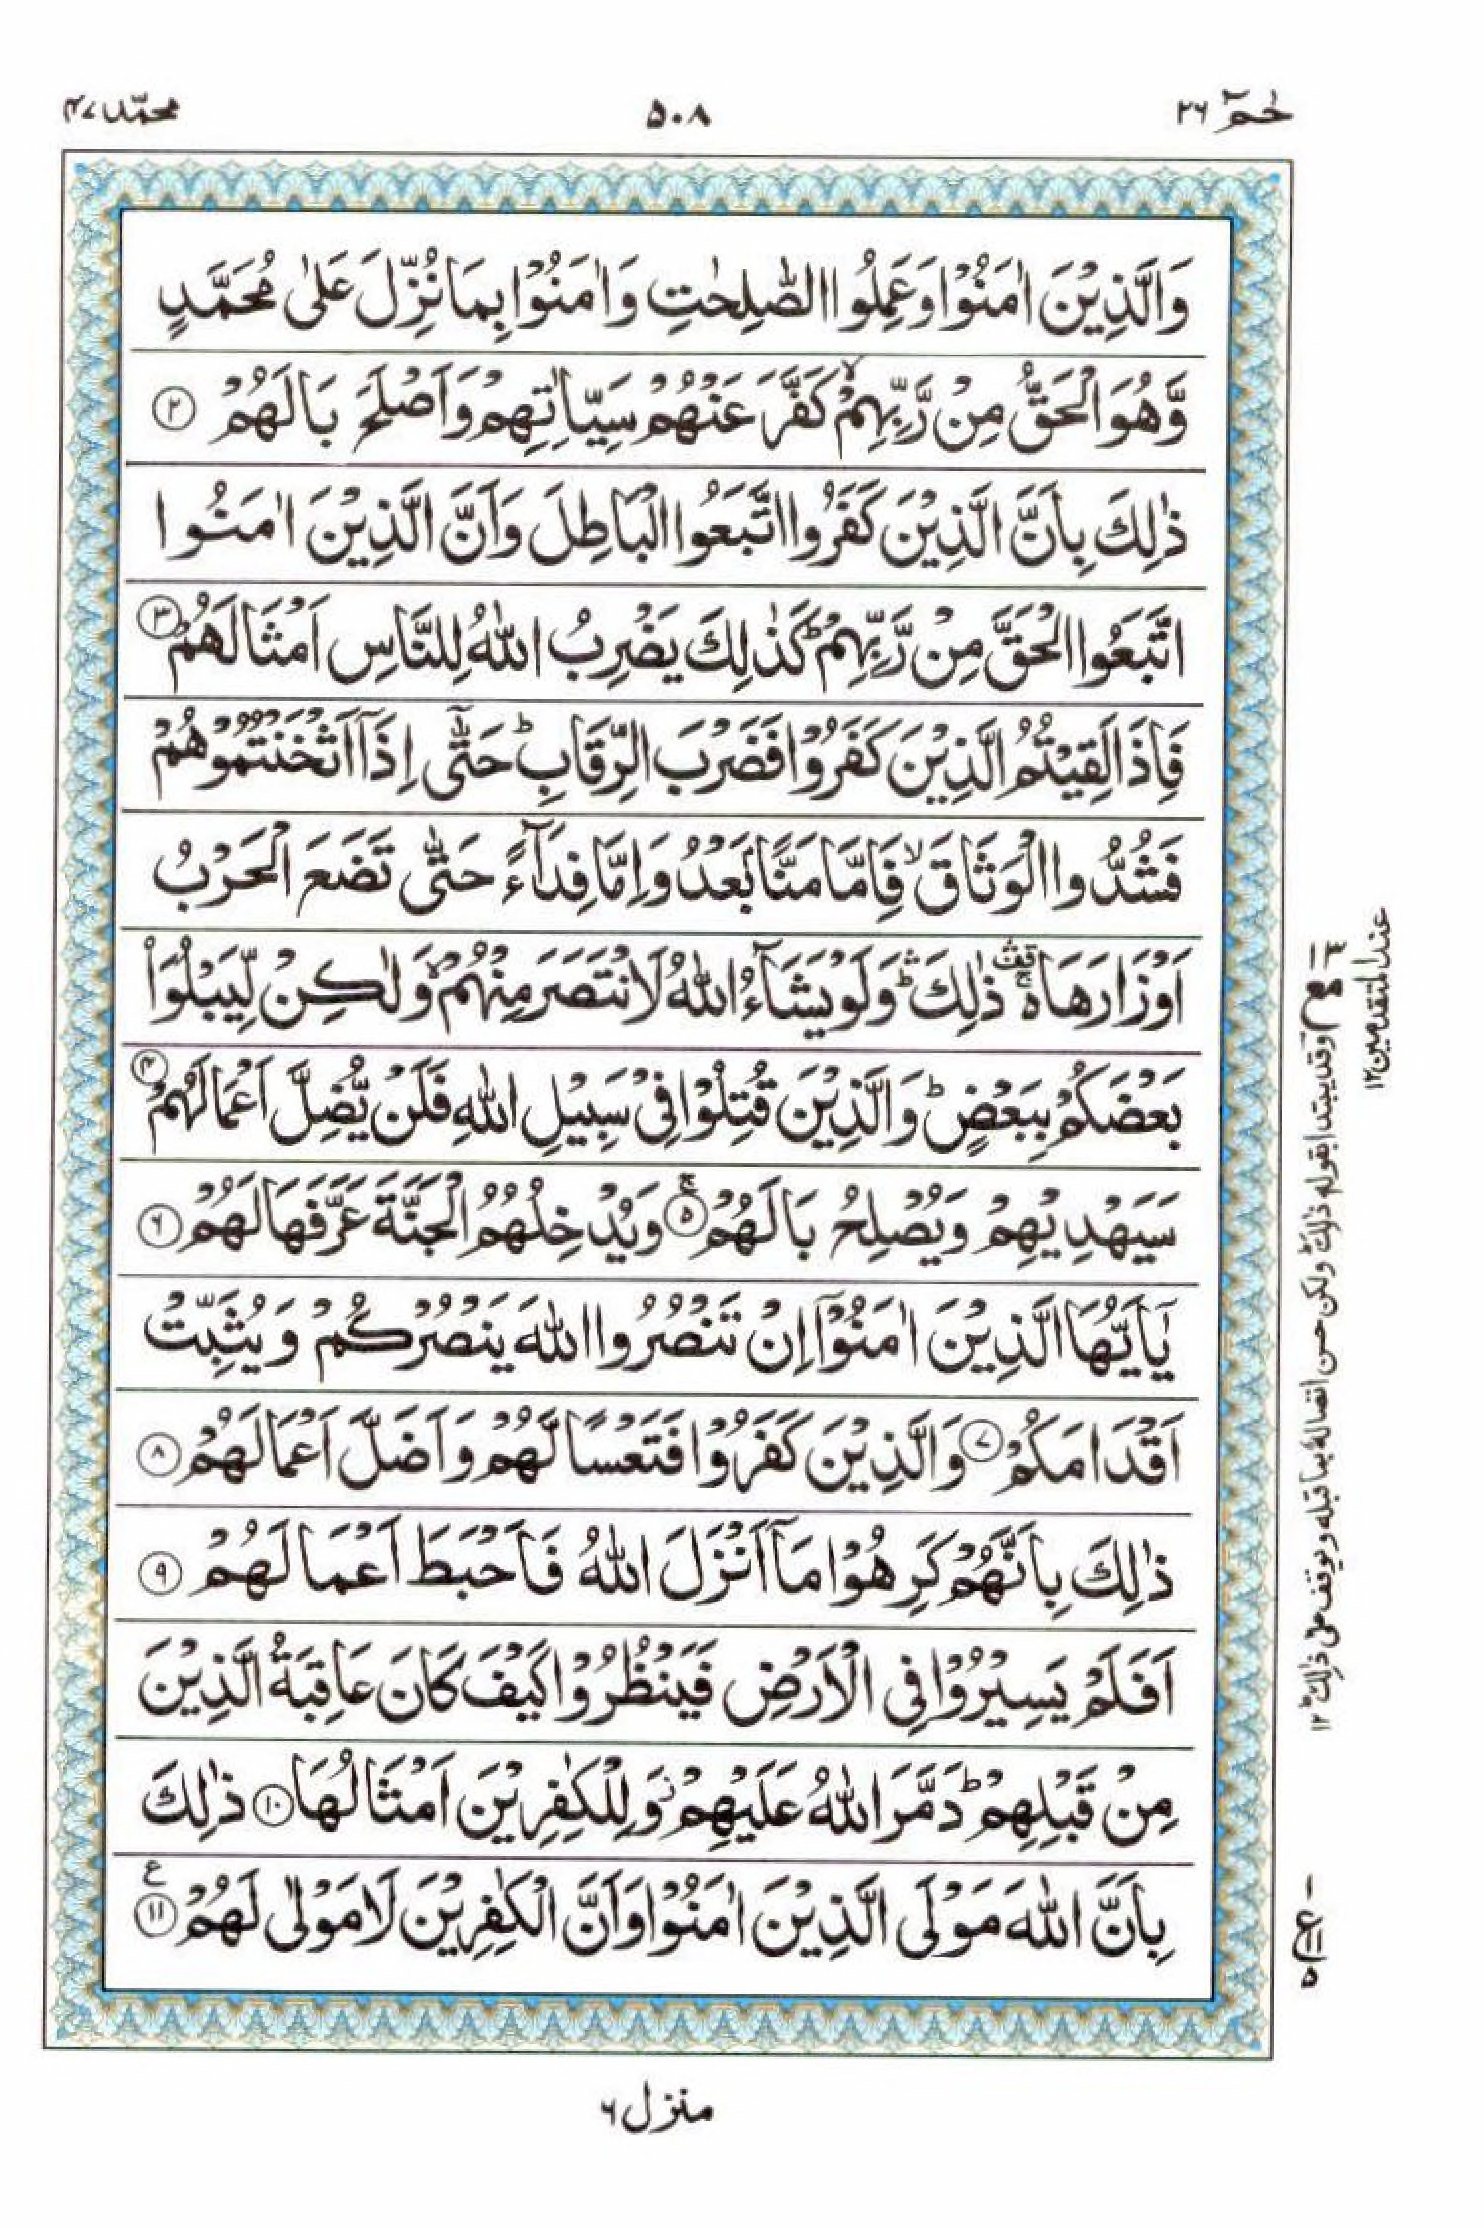 حٰمٓ ٢٦
٥٠٨
محمّد ٤٧
وَالَّذِيْنَ اٰمَنُوْا وَعَمِلُوا الصّٰلِحٰتِ وَاٰمَنُوْا بِمَا نُزِّلَ عَلٰى مُحَمَّدٍ
وَّهُوَ الْحَقُّ مِنْ رَّبِّهِمْ ۙ كَفَّرَ عَنْهُمْ سَيِّاٰتِهِمْ وَاَصْلَحَ بَالَهُمْ ﴿٢﴾
ذٰلِكَ بِاَنَّ الَّذِيْنَ كَفَرُوا اتَّبَعُوا الْبَاطِلَ وَاَنَّ الَّذِيْنَ اٰمَنُوا
اتَّبَعُوا الْحَقَّ مِنْ رَّبِّهِمْ ؕ كَذٰلِكَ يَضْرِبُ اللّٰهُ لِلنَّاسِ اَمْثَالَهُمْ ﴿٣﴾
فَاِذَا لَقِيْتُمُ الَّذِيْنَ كَفَرُوْا فَضَرْبَ الرِّقَابِ ؕ حَتّٰۤى اِذَاۤ اَثْخَنْتُمُوْهُمْ
فَشُدُّوا الْوَثَاقَ ۙ فَاِمَّا مَنًّۢا بَعْدُ وَاِمَّا فِدَآءً حَتّٰى تَضَعَ الْحَرْبُ
اَوْزَارَهَا ۛ۬ۚ ذٰلِكَ ۛؕ وَلَوْ يَشَآءُ اللّٰهُ لَانْتَصَرَ مِنْهُمْ ۙ وَلٰكِنْ لِّيَبْلُوَا۟
بَعْضَكُمْ بِبَعْضٍ ؕ وَالَّذِيْنَ قُتِلُوْا فِيْ سَبِيْلِ اللّٰهِ فَلَنْ يُّضِلَّ اَعْمَالَهُمْ ﴿٤﴾
سَيَهْدِيْهِمْ وَيُصْلِحُ بَالَهُمْ ﴿٥﴾ۚ وَيُدْخِلُهُمُ الْجَنَّةَ عَرَّفَهَا لَهُمْ ﴿٦﴾
يٰۤاَيُّهَا الَّذِيْنَ اٰمَنُوْۤا اِنْ تَنْصُرُوا اللّٰهَ يَنْصُرْكُمْ وَيُثَبِّتْ
اَقْدَامَكُمْ ﴿٧﴾ وَالَّذِيْنَ كَفَرُوْا فَتَعْسًا لَّهُمْ وَاَضَلَّ اَعْمَالَهُمْ ﴿٨﴾
ذٰلِكَ بِاَنَّهُمْ كَرِهُوْا مَاۤ اَنْزَلَ اللّٰهُ فَاَحْبَطَ اَعْمَالَهُمْ ﴿٩﴾
اَفَلَمْ يَسِيْرُوْا فِي الْاَرْضِ فَيَنْظُرُوْا كَيْفَ كَانَ عَاقِبَةُ الَّذِيْنَ
مِنْ قَبْلِهِمْ ؕ دَمَّرَ اللّٰهُ عَلَيْهِمْ ۚ وَلِلْكٰفِرِيْنَ اَمْثَالُهَا ﴿١٠﴾ ذٰلِكَ
بِاَنَّ اللّٰهَ مَوْلَى الَّذِيْنَ اٰمَنُوْا وَاَنَّ الْكٰفِرِيْنَ لَا مَوْلٰى لَهُمْ ﴿١١﴾ ع
وقد يبتدا بقوله ذلك ولكن حسن اتصاله بما قبله ويوقف على ذلك ١٢
عند المتقدمين ١٢
ع
٥
منزل ٦